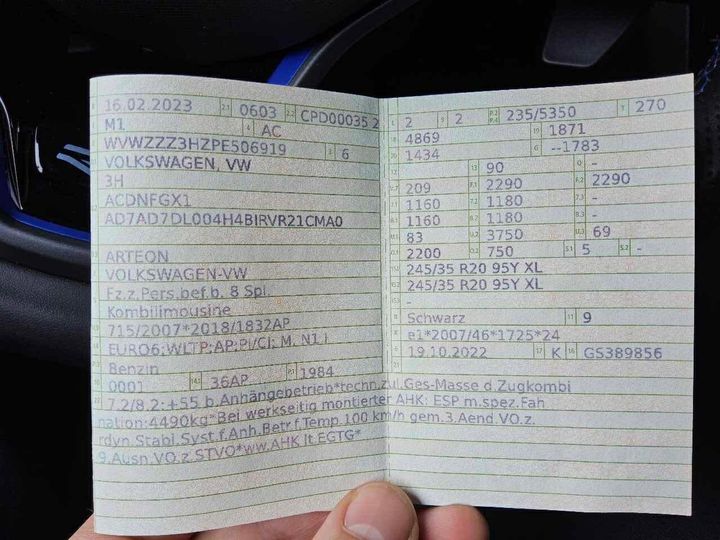 16.02.2023 2.1 0603 2.2 CPD00035 2
M1 4 AC
WVWZZZ3HZPE506919 3 6
VOLKSWAGEN, VW
3H
ACDNFGX1
AD7AD7DL004H4BIRVR21CMA0
ARTEON
VOLKSWAGEN-VW
Fz.z.Pers.bef.b. 8 Spl.
Kombilimousine
715/2007*2018/1832AP
EURO6;WLTP;AP;PI/CI; M, N1 I
Benzin P.1 1984
0001 14.1 36AP
7.2/8.2:+55 b.Anhängebetrieb*techn.zul.Ges-Masse d.Zugkombi
nation:4490kg*Bei werkseitig montierter AHK: ESP m.spez.Fah
rdyn.Stabl.Syst.f.Anh.Betr.f.Temp.100 km/h gem.3.Aend.VO.z.
9.Ausn.VO.z.STVO*ww.AHK lt EGTG*
L 2 9 2 P.2 P.4 235/5350 T 270
18 4869 19 1871
20 1434 G --1783
13 90 Q -
V.7 209 F.1 2290 F.2 2290
7.1 1160 7.2 1180 7.3 -
8.1 1160 8.2 1180 8.3 -
U.1 83 U.2 3750 U.3 69
O.1 2200 O.2 750 S.1 5 S.2 -
15.1 245/35 R20 95Y XL
15.2 245/35 R20 95Y XL
15.3 -
R Schwarz 11 9
K e1*2007/46*1725*24
6 19.10.2022 17 K 16 GS389856
21